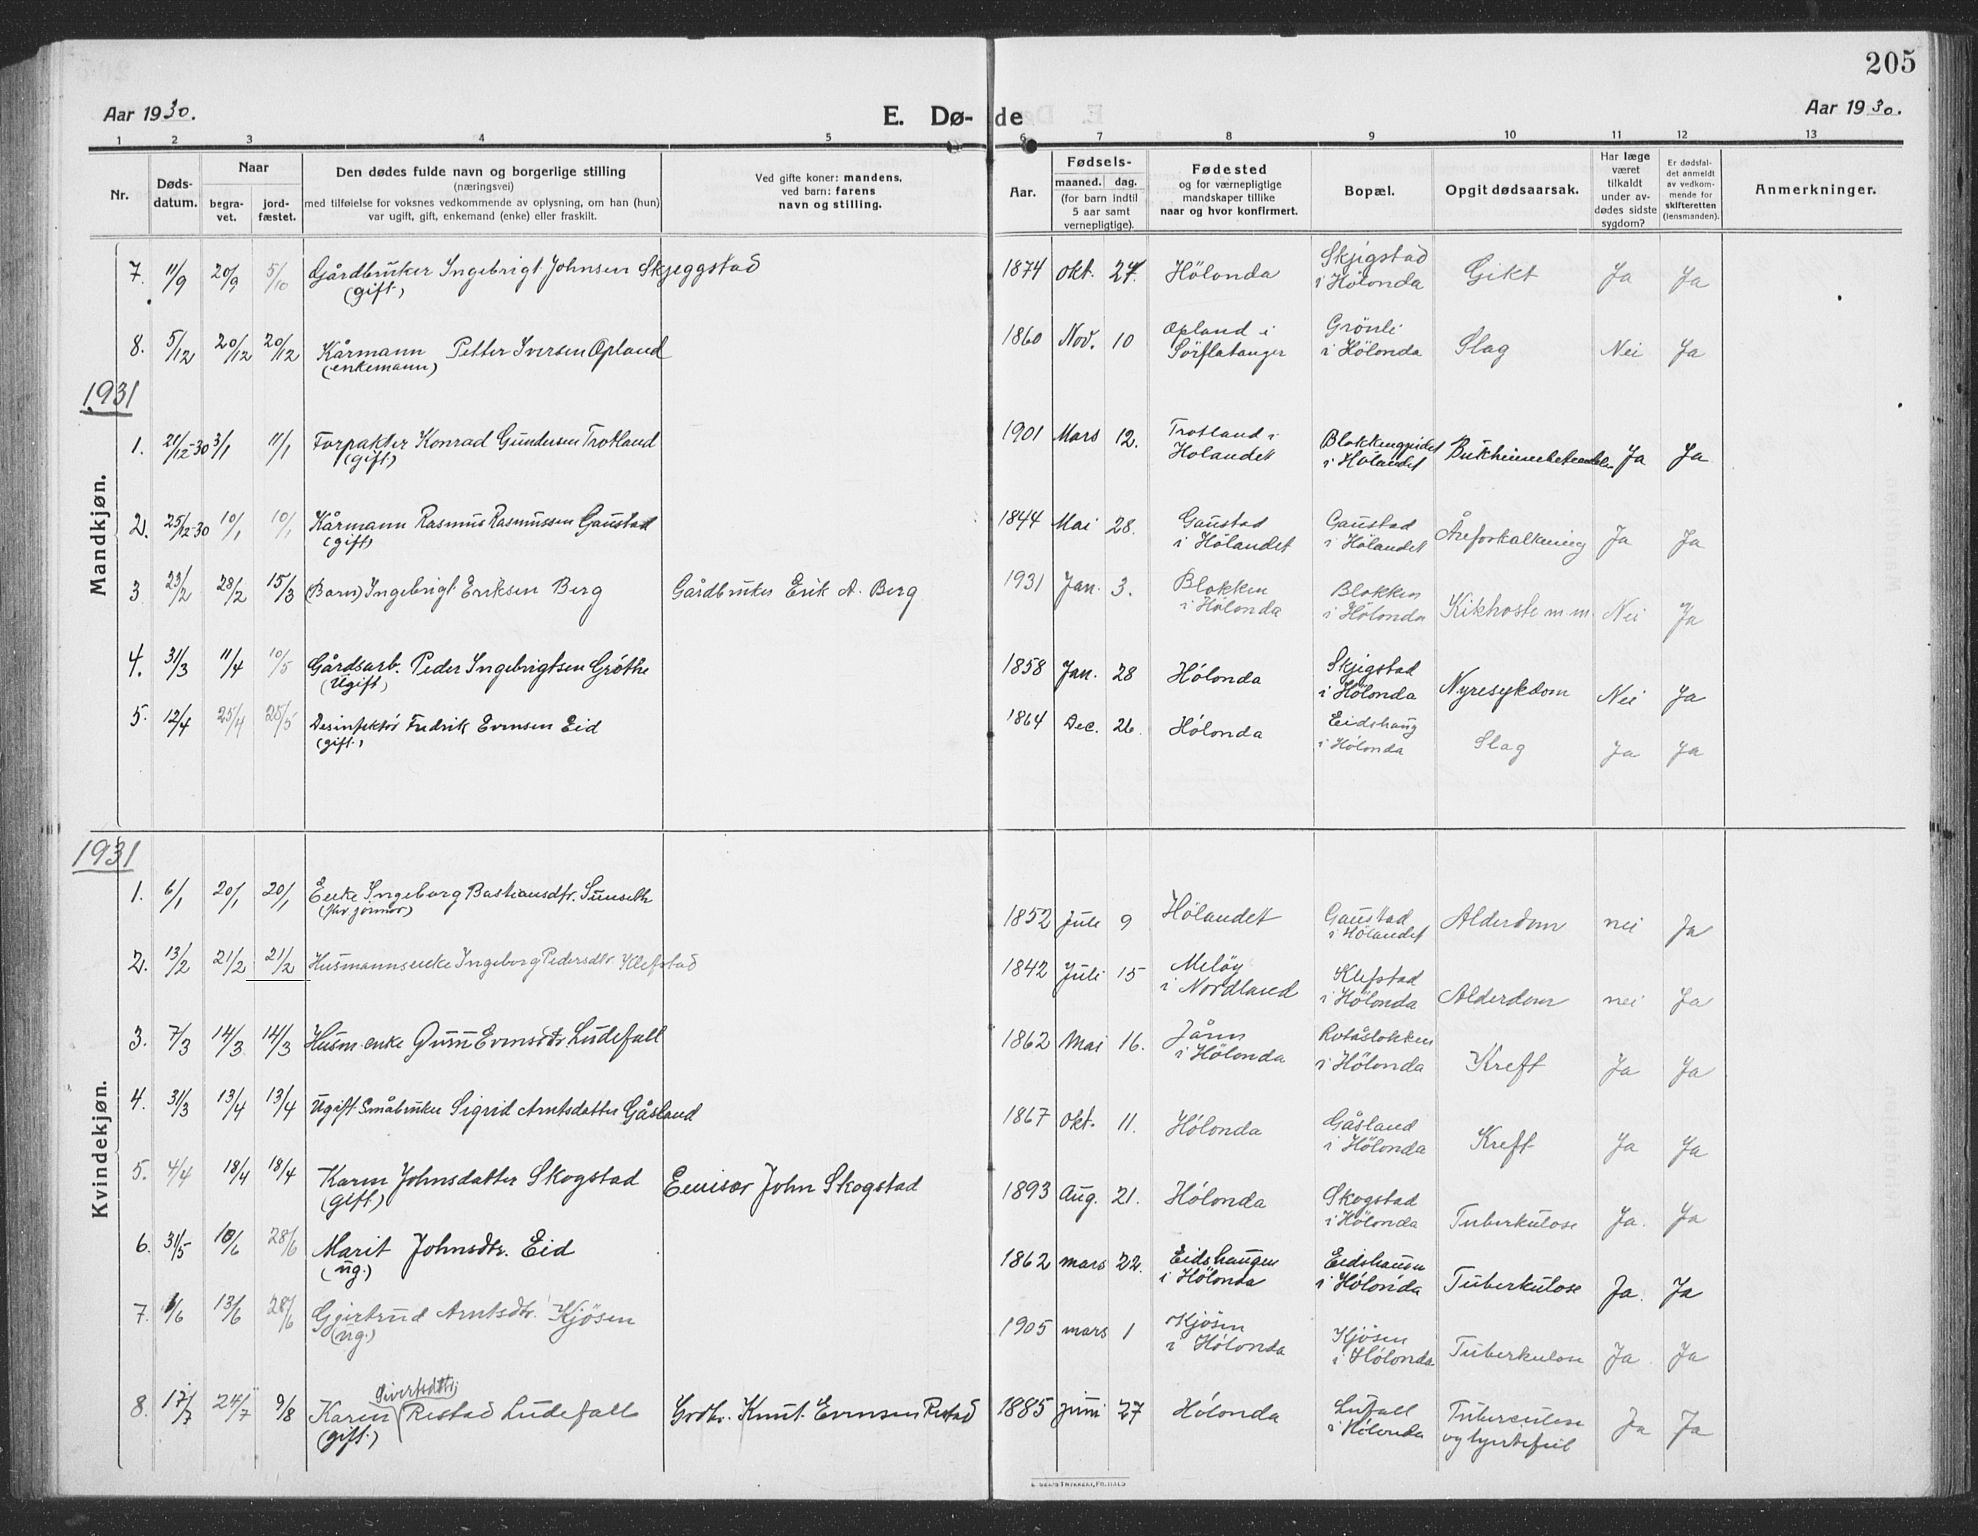 205
Aar 1930.
E. Dø- de
Aar 1930.
1 2 3 4 5 6 7 8 9 10 11 12 13
Nr.
Døds-
datum.
Naar
begra-
vet.
jord-
fæstet.
Den dødes fulde navn og borgerlige stilling
(næringsvei)
med tilføielse for voksnes vedkommende av oplysning, om han (hun)
var ugift, gift, enkemand (enke) eller fraskilt.
Ved gifte koner: mandens,
ved barn: farens
navn og stilling.
Aar.
Fødsels-
maaned. dag.
(for barn indtil
5 aar samt
vernepligtige).
Fødested
og for værnepligtige
mandskaper tillike
naar og hvor konfirmert.
Bopæl.
Opgit dødsaarsak.
Har læge
været
tilkaldt
under av-
dødes sidste
sygdom?
Er dødsfal-
det anmeldt
av vedkom-
mende for
skifteretten
(lensmanden).
Anmerkninger.
Mandkjøn.
7. 11/9 20/9 5/10 Gårdbruker Ingebrigt Johnsen Skjeggstad 1874 Okt. 27. Hölonda Skjigstad Gikt Ja Ja
(gift) i Hölonda
8. 5/12 20/12 20/12 Kårmann Petter Iversen Opland 1860 Nov. 10 Opland i Grönli Slag Nei Ja
(enkemann) Sörflatanger i Hölonda
1931
1. 21/12-30 3/1 11/1 Forpakter Konrad Gundersen Trotland 1901 Mars 12. Trotland i Ja Ja
(gift) Hølandet i Hølandet
2. 25/12-30 10/1 10/1 Kårmann Rasmus Rasmussen Gaustad 1844 Mai 28. Gaustad Gaustad Åreforkalkning Ja Ja
(gift) i Hölandet i Hölandet
3 23/2 28/2 15/3 (Barn) Ingebrigt Eriksen Berg Gårdbruker Erik A. Berg 1931 Jan. 3. Blokken Blokken Kikhoste m.m. Nei Ja
i Hölonda i Hölonda
4. 31/3 11/4 10/5 Gårdsarb. Peder Ingebrigtsen Gröthe 1858 Jan. 28 Hölonda Skjigstad Nyresykdom Nei Ja
(Ugift) i Hölonda
5. 12/4 25/4 25/5 Desinfektør Fredrik Evensen Eid 1864 Dec. 26. Hölonda Eidshaug Slag Ja Ja
(gift.) i Hölonda
Kvindekjøn.
1931
1. 6/1 20/1 20/1 Enke Ingeborg Bastiansdtr. Sunseth 1852 Juli 9 Hölandet Gaustad Alderdom nei Ja
(fhv jormor) i Hölandet
2. 13/2 21/2 21/2 Husmannsenke Ingeborg Pedersdtr. Klefstad 1842 Juli 15 Meløy Klefstad Alderdom nei Ja
i Nordland i Hölonda
3. 7/3 14/3 14/3 Husm. enke Evensdtr. Ludefall 1862 Mai 16. Jåren Kreft Ja Ja
i Hölonda i Hölonda
4. 31/3 13/4 13/4 Ugift Småbruker Sigrid Arntsdatter Gåsland 1867 Okt. 11. Hölonda Gåsland Kreft Ja Ja
i Hölonda
5. 4/4 18/4 18/4 Karen Johnsdatter Skogstad Emisær John Skogstad 1893 Aug. 21. Hölonda Skogstad Tuberkulose Ja. Ja
(gift) i Hölonda
6. 31/5 10/6 28/6 Marit Johnsdtr. Eid 1862 mars 22. Eidshaugen Eidshauen Tuberkulose Ja. Ja
(ug.) i Hölonda i Hölonda
7. 1/6 13/6 28/6 Gjertrud Arntsdtr. Kjösen 1905 mars 1 Kjösen Kjösen Tuberkulose Ja Ja
(ug.) i Hölonda i Hölonda
Sivertsdttr.
8. 17/7 24/7 9/8 Karen Restad Ludefall Grdbr. Knut Evensen Restad 1885 juni 27 Hölonda Lufall Tuberculose Ja Ja
(gift.) i Hölonda og hjertefeil